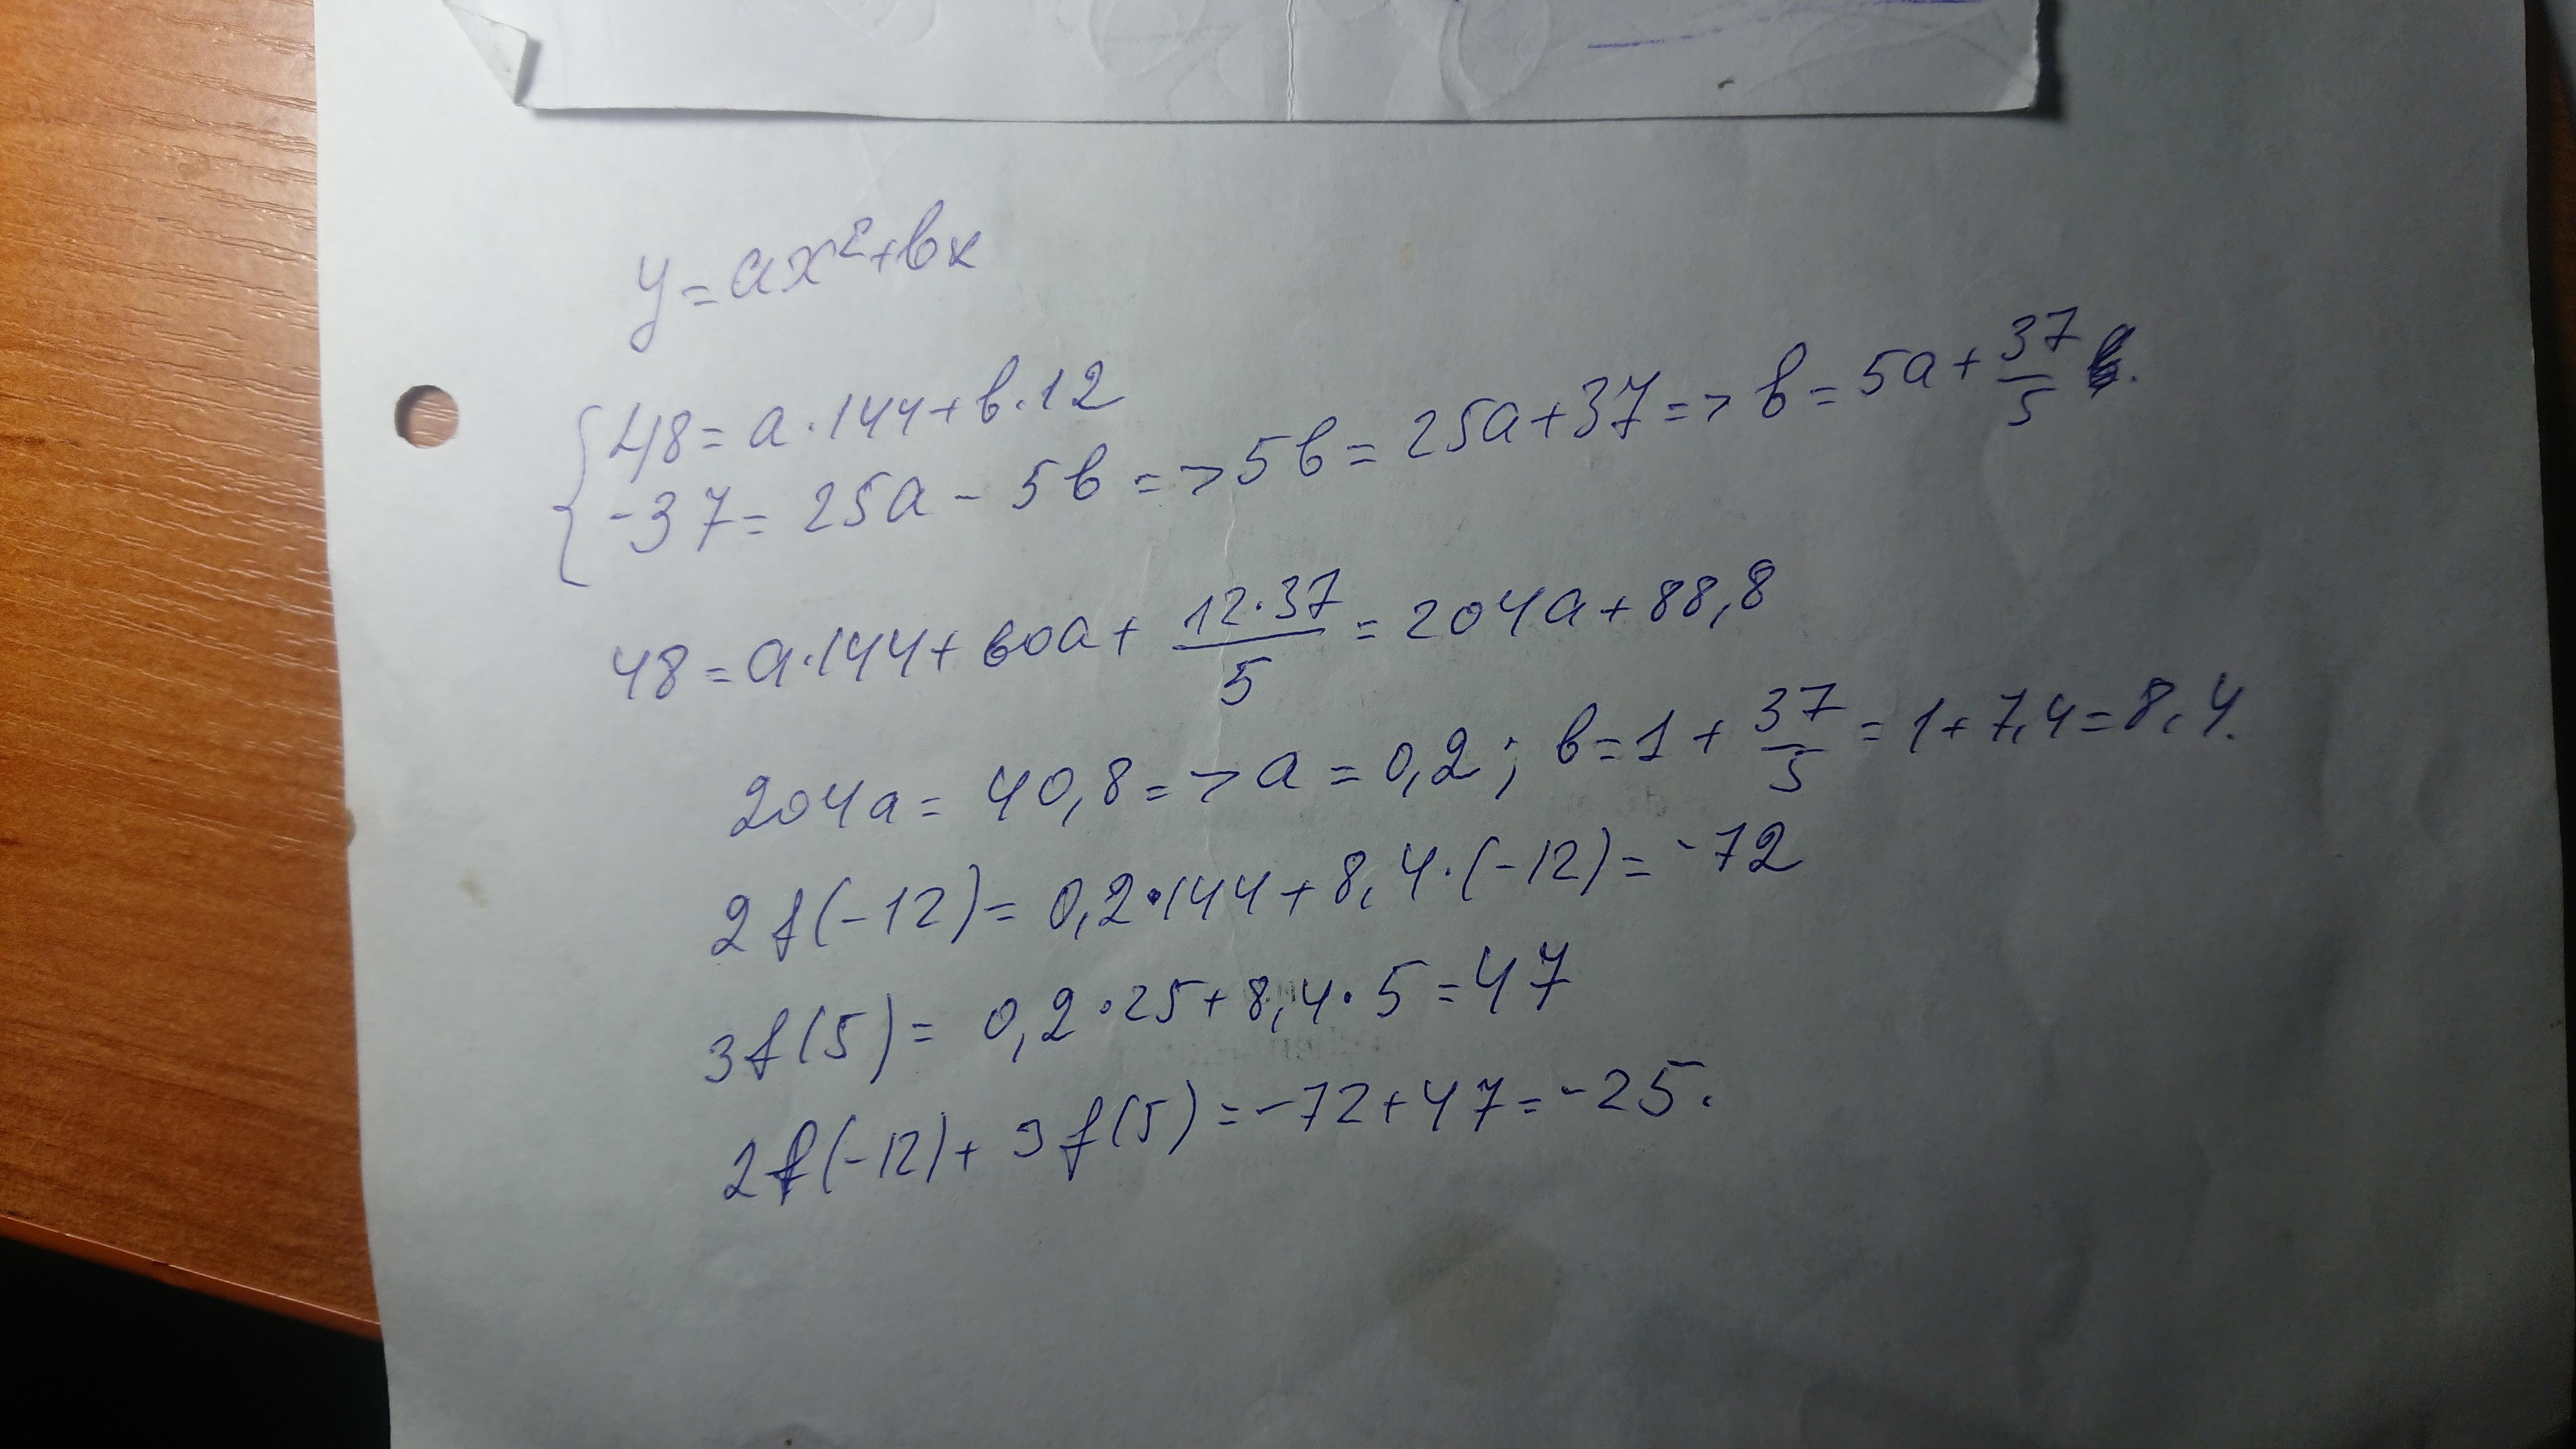 y=ax²+bx
48=a·144+b·12
-37=25a-5b=>5b=25a+37=>b=5a+37/5
48=a·144+60a+12·37/5=204a+88,8
204a=40,8=>a=0,2; b=1+37/5=1+7,4=8,4.
2f(-12)=0,2·144+8,4·(-12)=-72
3f(5)=0,2·25+8,4·5=47
2f(-12)+3f(5)=-72+47=-25.